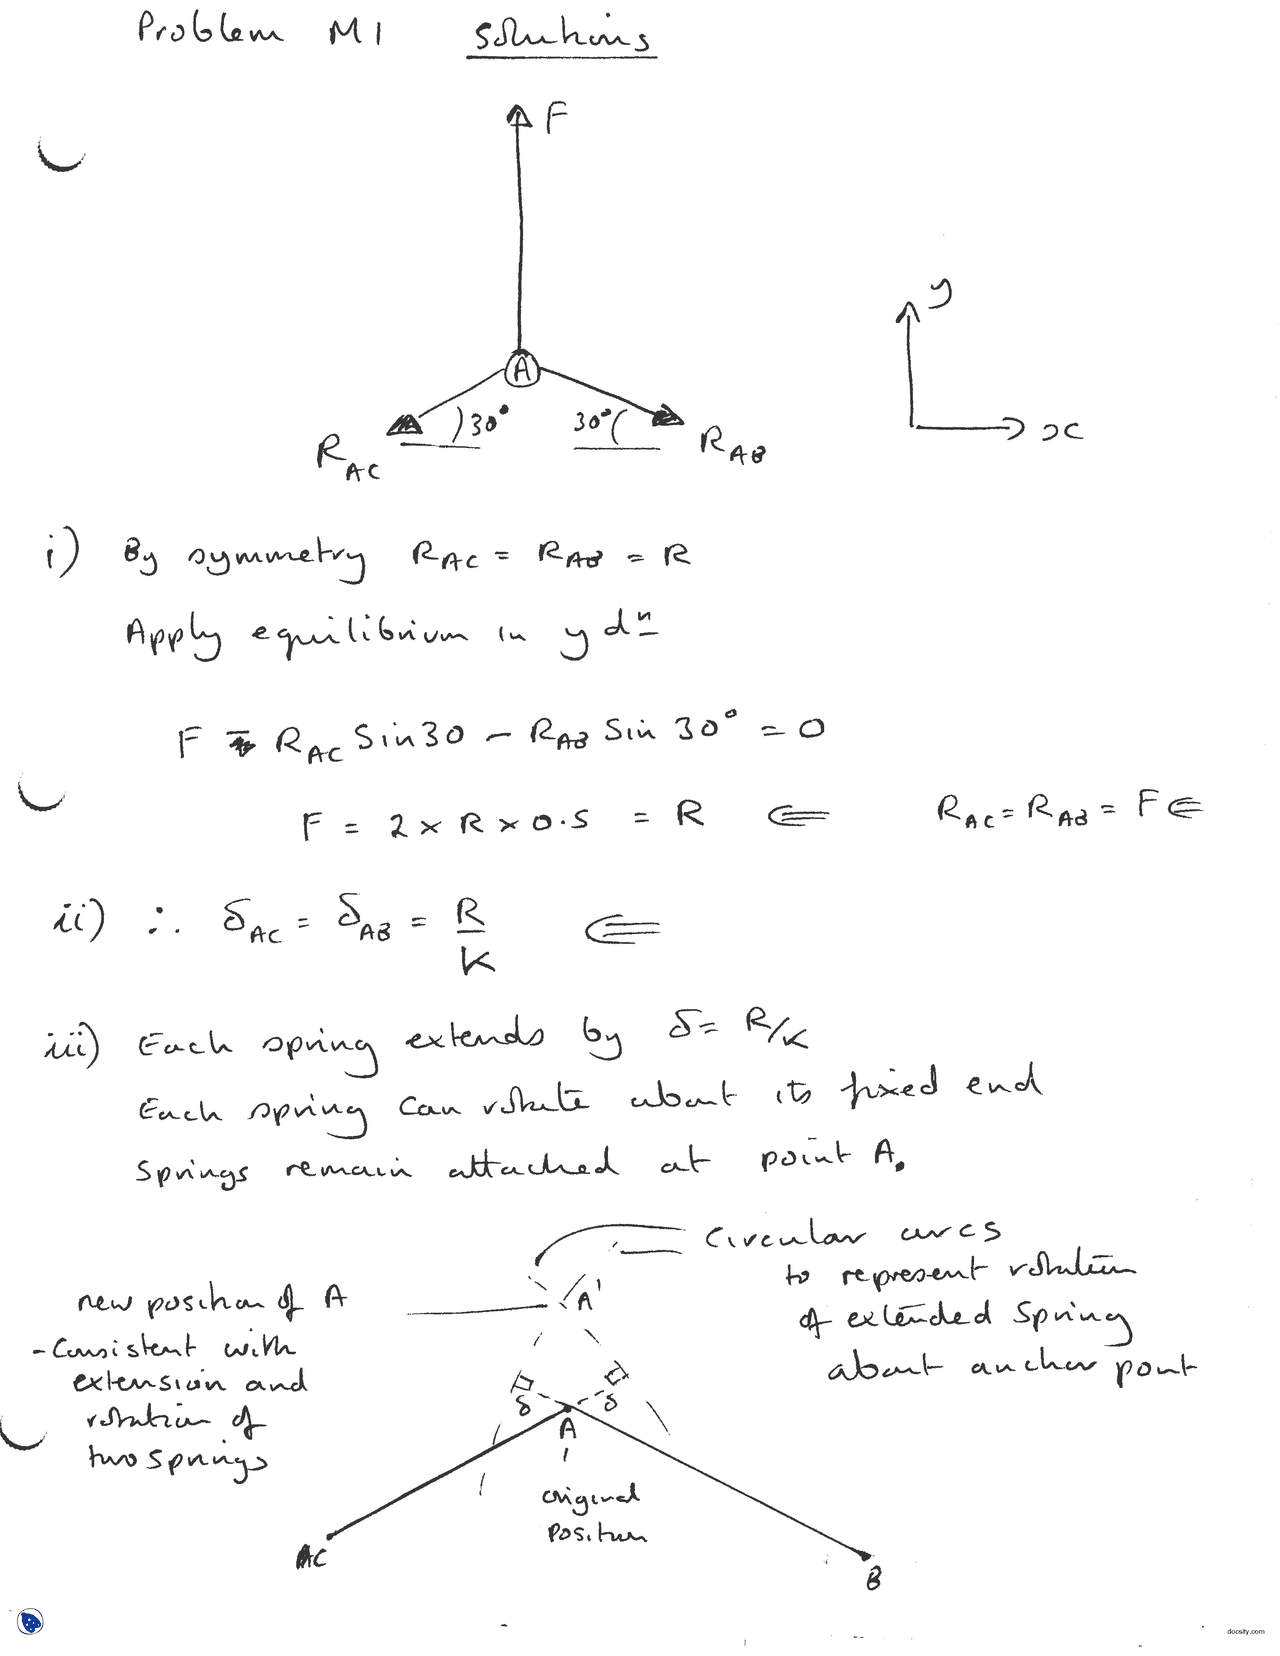 Problem M1 Solutions
F
y
A
30° 30°
x
R_AC R_AB
i) By symmetry R_AC = R_AB = R
Apply equilibrium in y dⁿ
F - R_AC Sin30 - R_AB Sin 30° = 0
F = 2 x R x 0.5 = R ⇐ R_AC = R_AB = F ⇐
ii) ∴ δ_AC = δ_AB = R/K ⇐
iii) Each spring extends by δ = R/K
Each spring can rotate about its fixed end
Springs remain attached at point A.
Circular arcs
to represent rotation
of extended spring
about anchor point
new position of A
- Consistent with
extension and
rotation of
two springs
A'
δ δ
A
original
position
C
B
docsity.com